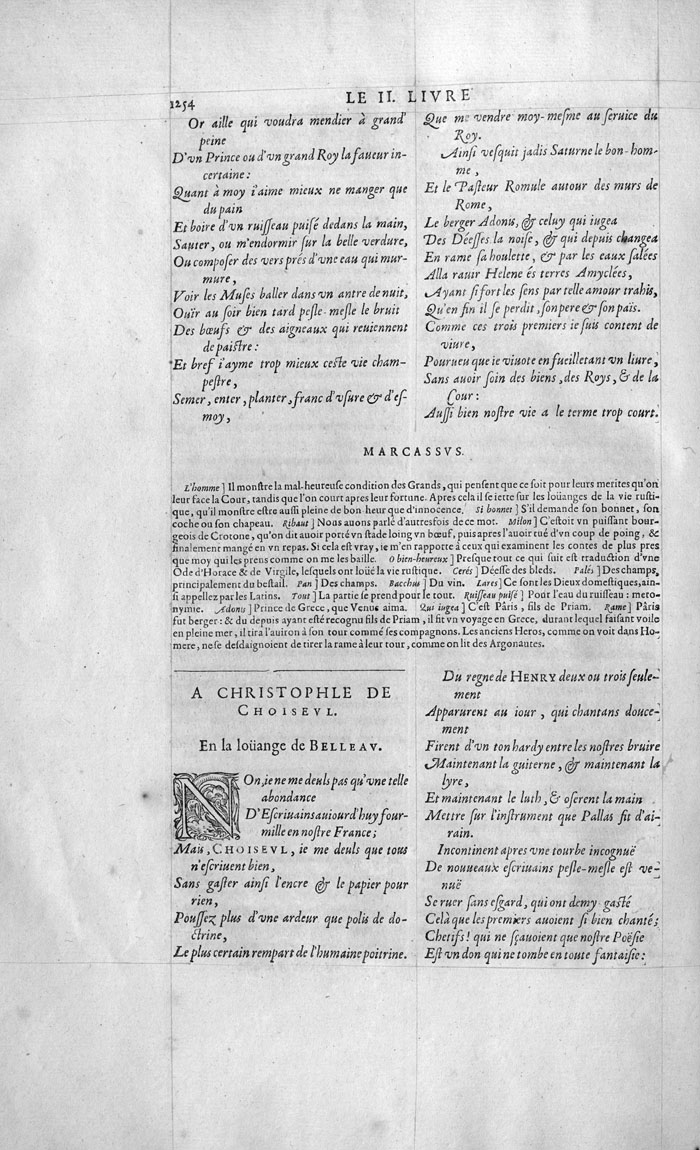 1254
LE II. LIVRE
Or aille qui voudra mendier à grand'
peine
D'vn Prince ou d'vn grand Roy la faueur in-
certaine:
Quant à moy i'aime mieux ne manger que
du pain
Et boire d'vn ruisseau puisé dedans la main,
Sauter, ou m'endormir sur la belle verdure,
Ou composer des vers prés d'vne eau qui mur-
mure,
Voir les Muses baller dans vn antre de nuit,
Ouïr au soir bien tard pesle-mesle le bruit
Des bœufs & des aigneaux qui reuiennent
de paistre:
Et bref i'ayme trop mieux ceste vie cham-
pestre,
Semer, enter, planter, franc d'vsure & d'es-
moy,
Que me vendre moy-mesme au seruice du
Roy.
Ainsi vesquit jadis Saturne le bon-hom-
me,
Et le Pasteur Romule autour des murs de
Rome,
Le berger Adonis, & celuy qui iugea
Des Déesses la noise, & qui depuis changea
En rame sa houlette, & par les eaux salées
Alla rauir Helene és terres Amyclées,
Ayant si fort les sens par telle amour trahis,
Qu'en fin il se perdit, son pere & son païs.
Comme ces trois premiers ie suis content de
viure,
Pourueu que ie viuote en fueilletant vn liure,
Sans auoir soin des biens, des Roys, & de la
Cour:
Aussi bien nostre vie a le terme trop court.
MARCASSVS.
L'homme ] Il monstre la mal-heureuse condition des Grands, qui pensent que ce soit pour leurs merites qu'on
leur face la Cour, tandis que l'on court apres leur fortune. Apres cela il se iette sur les loüanges de la vie rusti-
que, qu'il monstre estre aussi pleine de bon-heur que d'innocence. Si bonnet ] S'il demande son bonnet, son
coche ou son chapeau. Ribaut ] Nous auons parlé d'autresfois de ce mot. Milon ] C'estoit vn puissant bour-
geois de Crotone, qu'on dit auoir porté vn stade loing vn bœuf, puis apres l'auoir tué d'vn coup de poing, &
finalement mangé en vn repas. Si cela est vray, ie m'en rapporte à ceux qui examinent les contes de plus pres
que moy qui les prens comme on me les baille. O bien-heureux ] Presque tout ce qui suit est traduction d'vne
Ode d'Horace & de Virgile, lesquels ont loüé la vie rustique. Cerés ] Déesse des bleds. Palés ] Des champs,
principalement du bestail. Pan ] Des champs. Bacchus ] Du vin. Lares ] Ce sont les Dieux domestiques, ain-
si appellez par les Latins. Tout ] La partie se prend pour le tout. Ruisseau puisé ] Pour l'eau du ruisseau: meto-
nymie. Adonis ] Prince de Grece, que Venus aima. Qui iugea ] C'est Pâris, fils de Priam. Rame ] Pâris
fut berger: & du depuis ayant esté recogneu fils de Priam, il fit vn voyage en Grece, durant lequel faisant voile
en pleine mer, il tira l'auiron à son tour comme ses compagnons. Les anciens Heros, comme on voit dans Ho-
mere, ne se desdaignoient de tirer la rame à leur tour, comme on lit des Argonautes.
A CHRISTOPHLE DE
CHOISEVL.
En la loüange de BELLEAV.
NOn, ie ne me deuls pas qu'vne telle
abondance
D'Escriuains auiourd'huy four-
mille en nostre France;
Mais, CHOISEVL, ie me deuls que tous
n'escriuent bien,
Sans gaster ainsi l'encre & le papier pour
rien,
Poussez plus d'vne ardeur que polis de do-
ctrine,
Le plus certain rempart de l'humaine poitrine.
Du regne de HENRY deux ou trois seule-
ment
Apparurent au iour, qui chantans douce-
ment
Firent d'vn ton hardy entre les nostres bruire
Maintenant la guiterne, & maintenant la
lyre,
Et maintenant le luth, & oserent la main
Mettre sur l'instrument que Pallas fit d'ai-
rain.
Incontinent apres vne tourbe incognuë
De nouueaux escriuains pesle-mesle est ve-
nuë
Se ruer sans esgard, qui ont demy gasté
Celà que les premiers auoient si bien chanté;
Chetifs! qui ne sçauoient que nostre Poësie
Est vn don qui ne tombe en toute fantaisie: